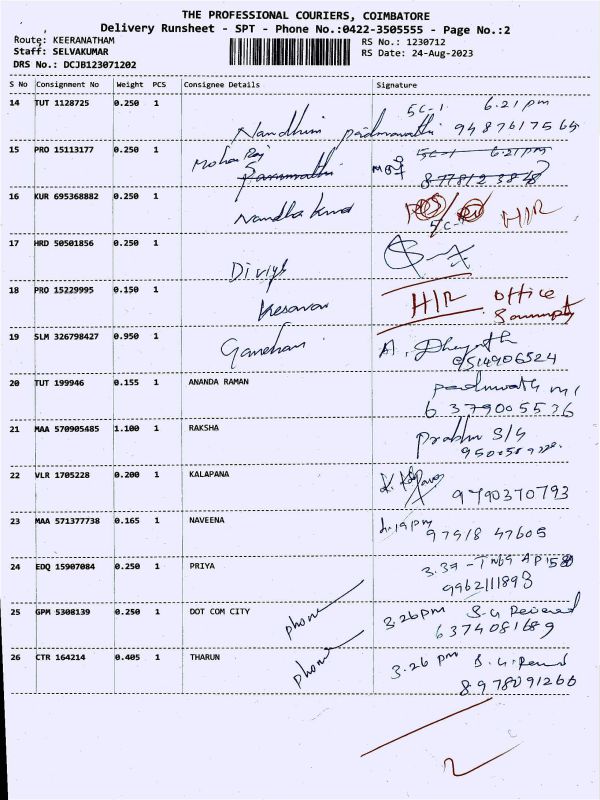 THE PROFESSIONAL COURIERS, COIMBATORE
Delivery Runsheet - SPT - Phone No.:0422-3505555 - Page No.:2
Route: KEERANATHAM RS No.: 1230712
Staff: SELVAKUMAR RS Date: 24-Aug-2023
DRS No.: DCJB123071202
S No Consignment No Weight PCS Consignee Details Signature
14 TUT 1128725 0.250 1 5C-1 6.21 pm
Nandhini
15 PRO 15113177 0.250 1 5C-1 6.21pm
Mohan Raj
16 KUR 695368882 0.250 1 Nandha
5C- H/R
17 HRD 50501856 0.250 1
18 PRO 15229995 0.150 1 H/R office
Kesavan
19 SLM 326798427 0.950 1
9514906524
20 TUT 199946 0.155 1 ANANDA RAMAN
6379005536
21 MAA 570905485 1.100 1 RAKSHA Prabhu S/G
22 VLR 1705228 0.200 1 KALAPANA
9790370793
23 MAA 571377738 0.165 1 NAVEENA 4.19pm
97918 47605
24 EDQ 15907084 0.250 1 PRIYA 3.37 -
9962111893
25 GPM 5308139 0.250 1 DOT COM CITY phone 3.26pm S.G Received
6374081689
26 CTR 164214 0.405 1 THARUN phone 3.26 pm S.G.
8978091266